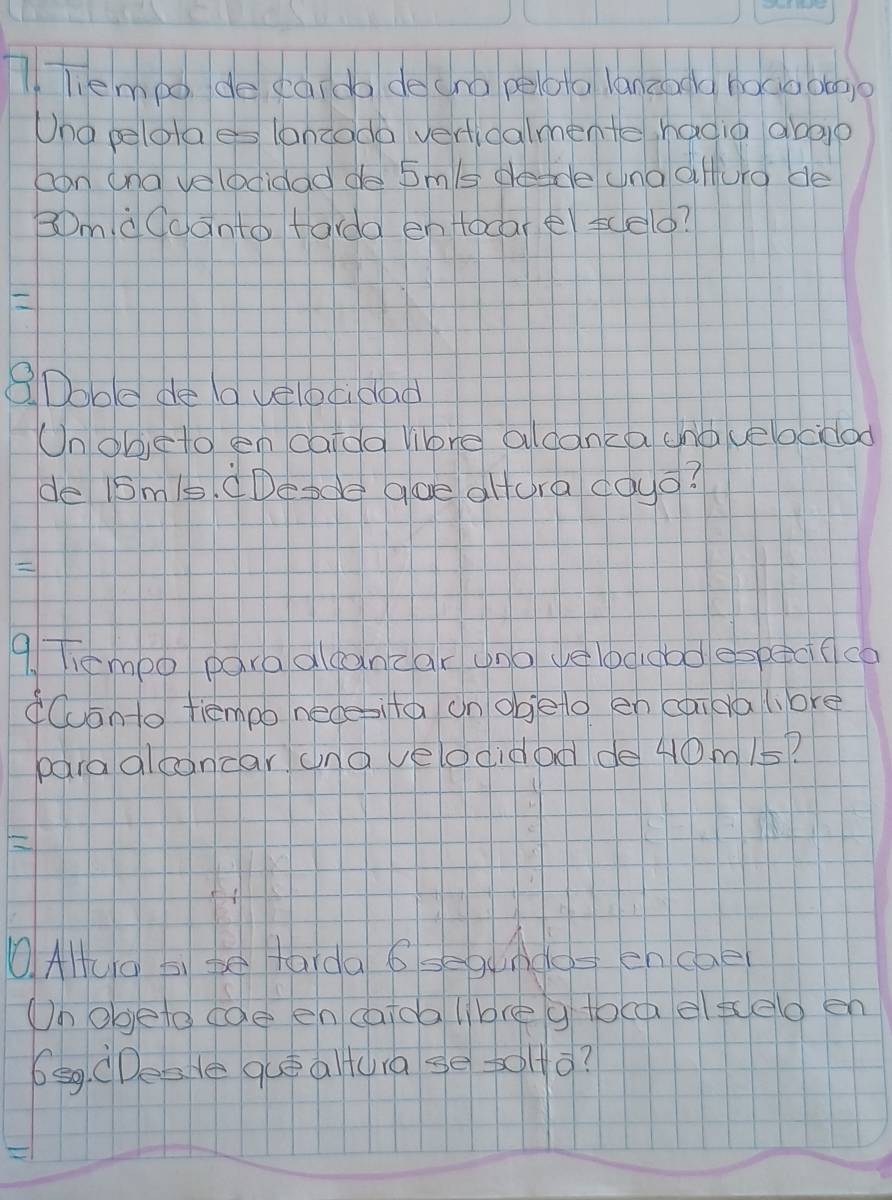 7. Tiempo de caida de una pelota lanzada hacia abajo
Una pelota es lanzada verticalmente hacia abajo
con una velocidad de 5m/s desde una altura de
30m.¿Cuánto tarda en tocar el suelo?
=
8. Doble de la velocidad
Un objeto en caida libre alcanza una velocidad
de 15m/s.¿Desde que altura cayó?
=
9. Tiempo para alcanzar una velocidad especifica
¿Cuánto tiempo necesita un objeto en caida libre
para alcanzar una velocidad de 40m/s?
=
10. Altura si se tarda 6 segundos en caer
Un objeto cae en caida libre y toca el suelo en
6sg.¿Desde qué altura se soltó?
=